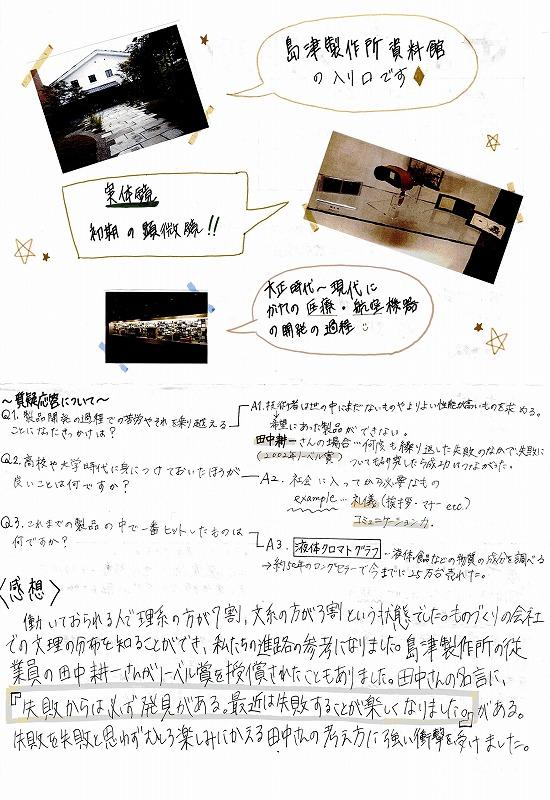 島津製作所資料館
の入り口です
実体鏡
初期の顕微鏡!!
大正時代~現代に
かけての医療・航空機器
の開発の過程
~質疑応答について~
Q1. 製品開発の過程での苦労やそれを乗り越える
ことになったきっかけは?
A1. 技術者は世の中にまだないものやよりよい性能が高いものを求める。
希望にあった製品ができない。
田中耕一さんの場合…何度も繰り返した失敗のなかで、失敗に
(2002年ノーベル賞)
ついても研究したら成功につながった。
Q2. 高校や大学時代に身につけておいたほうが
良いことは何ですか?
A2. 社会に入ってから必要なもの
example… 礼儀(挨拶・マナーetc.)
コミュニケーション力.
Q3. これまでの製品の中で一番ヒットしたものは
何ですか?
A3. 液体クロマトグラフ…液体・食品などの物質の成分を調べる
→約50年のロングセラーで今までに25万台売れた。
〈感想〉
働いておられる人で理系の方が7割、文系の方が3割という状態でした。ものづくりの会社
での文理の分布を知ることができ、私たちの進路の参考になりました。島津製作所の従
業員の田中耕一さんがノーベル賞を授賞されたこともありました。田中さんの名言に、
『失敗からは必ず発見がある。最近は失敗することが楽しくなりました。』がある。
失敗を失敗と思わずむしろ楽しみにかえる田中さんの考え方に強い衝撃を受けました。